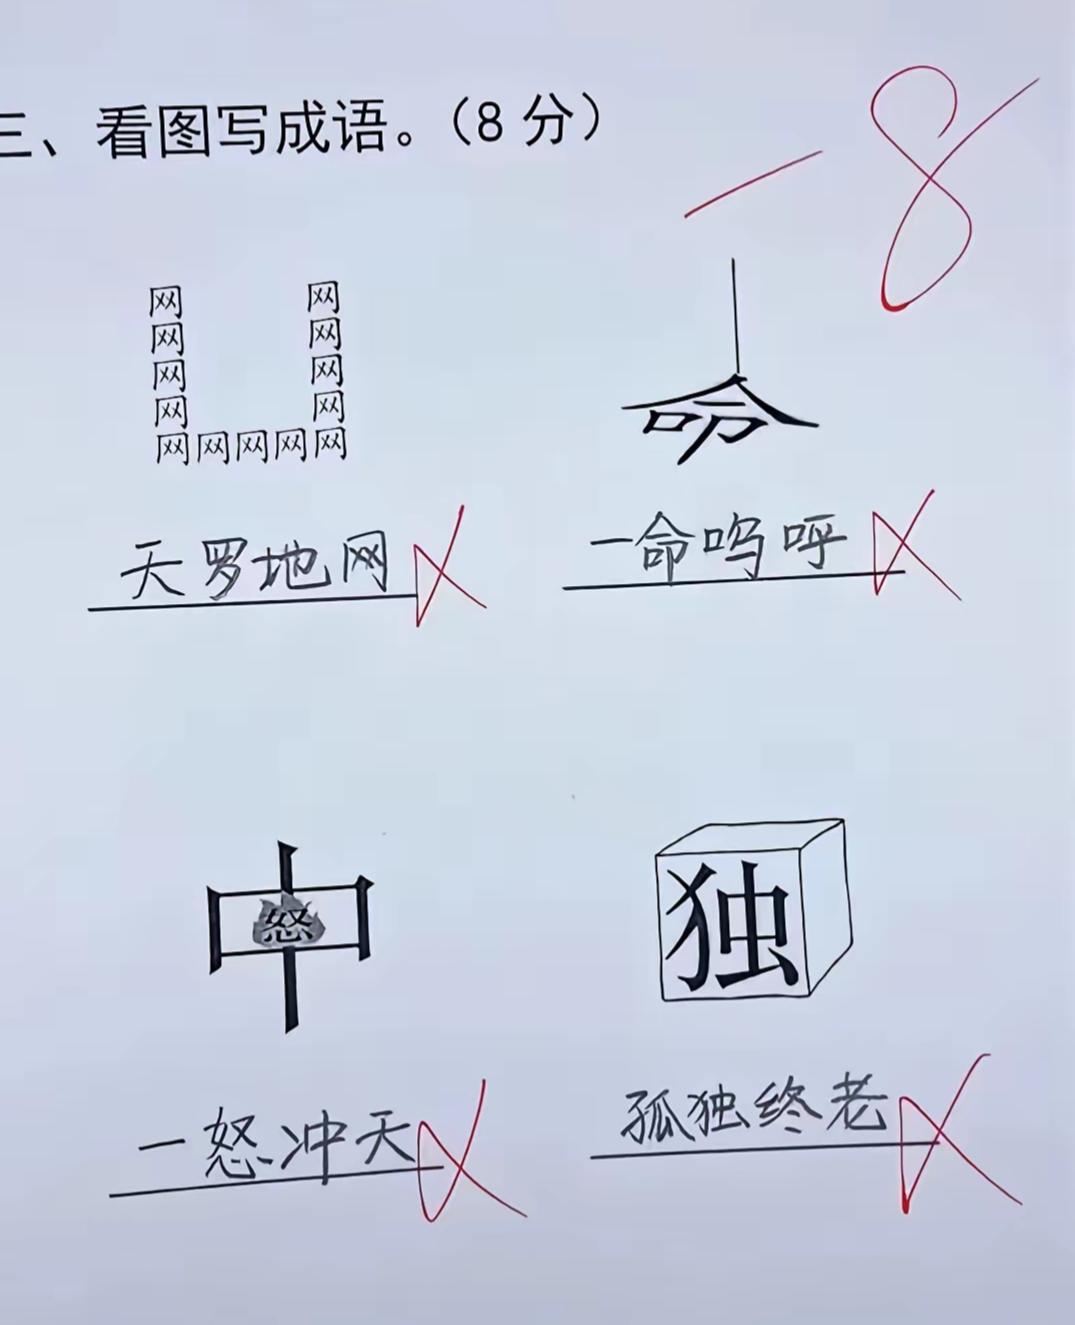 三、看图写成语。（8 分）
-8
网 网
网 网
网 网
网 网
网网网网网
命
天罗地网
一命呜呼
中
怒
独
一怒冲天
孤独终老